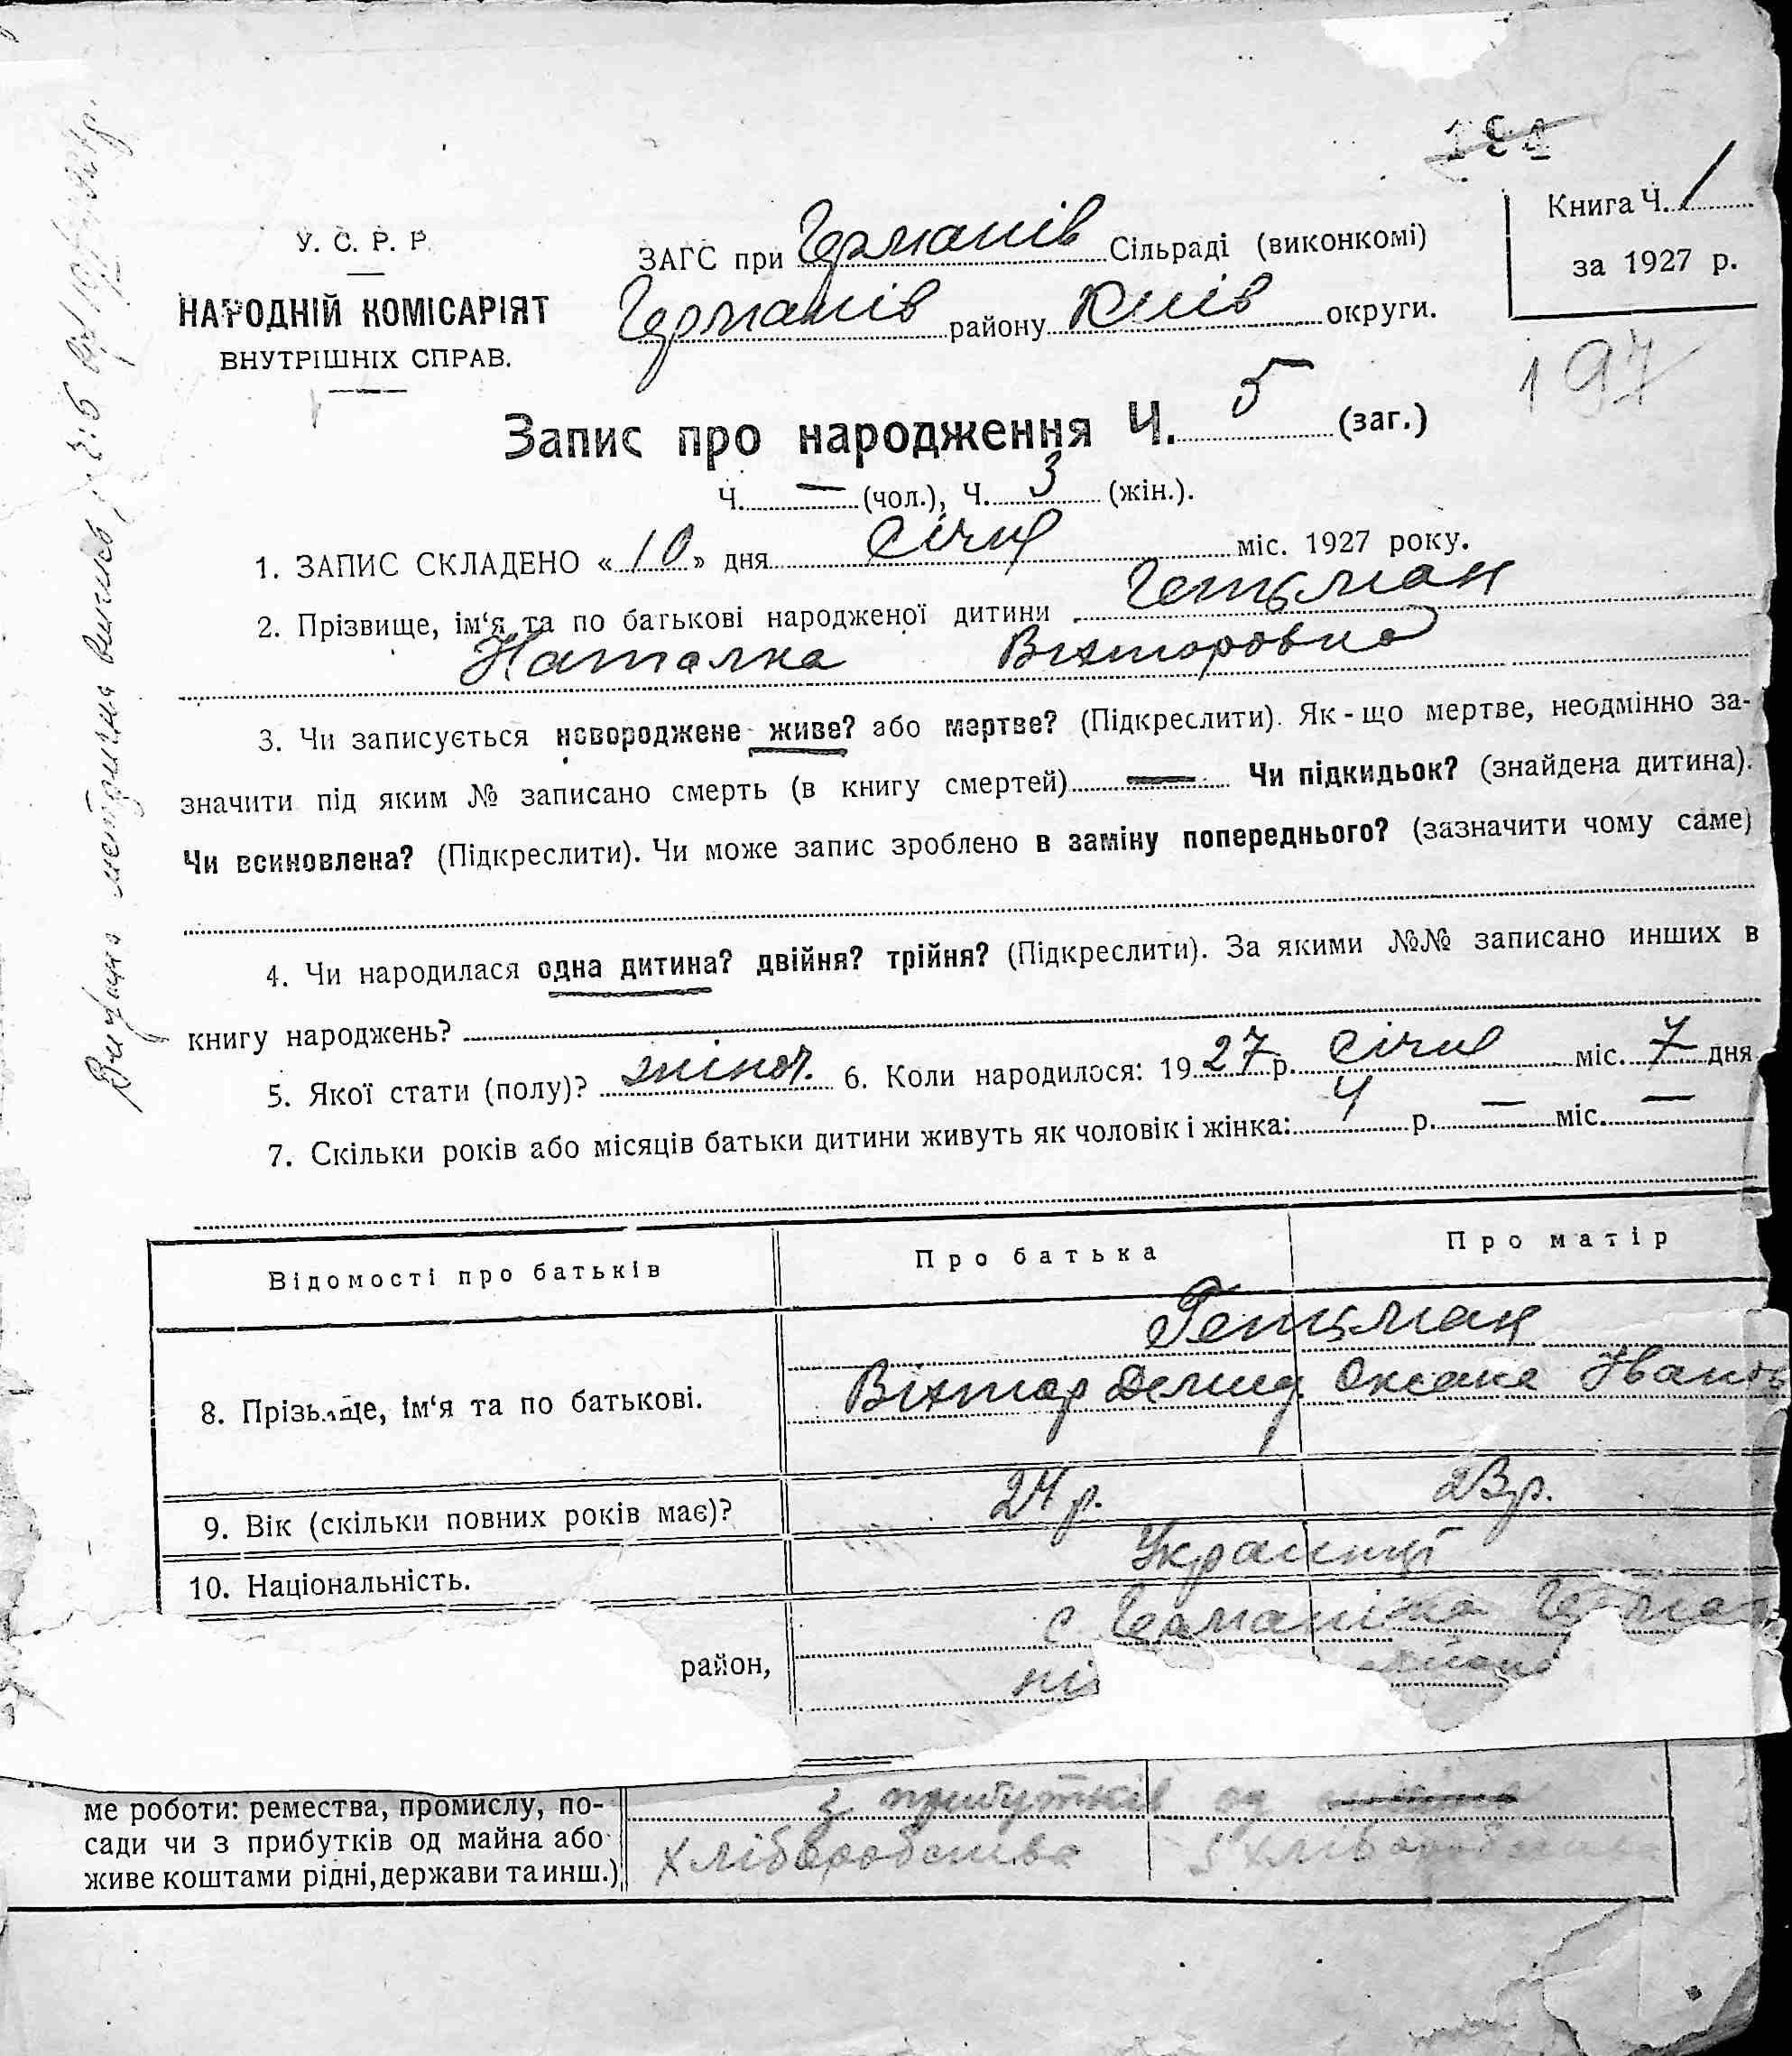 191
Книга Ч. 1
за 1927 р.
197
У. С. Р. Р.
НАРОДНІЙ КОМІСАРІЯТ
ВНУТРІШНІХ СПРАВ.
ЗАГС при Германів Сільраді (виконкомі)
Германів району Київ округи.
Запис про народження Ч. 5 (заг.)
Ч. — (чол.), Ч. 3 (жін.).
1. ЗАПИС СКЛАДЕНО « 10 » дня Січня міс. 1927 року.
2. Прізвище, ім'я та по батькові народженої дитини Гетьман
Наталка Вікторовна
3. Чи записується новороджене живе? або мертве? (Підкреслити). Як-що мертве, неодмінно за-
значити під яким № записано смерть (в книгу смертей) — Чи підкидьок? (знайдена дитина).
Чи всиновлена? (Підкреслити). Чи може запис зроблено в заміну попереднього? (зазначити чому саме)
4. Чи народилася одна дитина? двійня? трійня? (Підкреслити). За якими №№ записано инших в
книгу народжень?
5. Якої стати (полу)? жіноч. 6. Коли народилося: 1927 р. Січня міс. 7 дня
7. Скільки років або місяців батьки дитини живуть як чоловік і жінка: 4 р. — міс. —
Відомості про батьків Про батька Про матір
Гетьман
8. Прізвище, ім'я та по батькові. Віктор Демид. Оксана Іванов
9. Вік (скільки повних років має)? 24 р. 23 р.
10. Національність. Українці
с. Германівка Герма
район, ні району
ме роботи: ремества, промислу, по- з прибутків од
сади чи з прибутків од майна або хліборобства з хліборобства
живе коштами рідні, держави та инш.)
Видана метрична випись